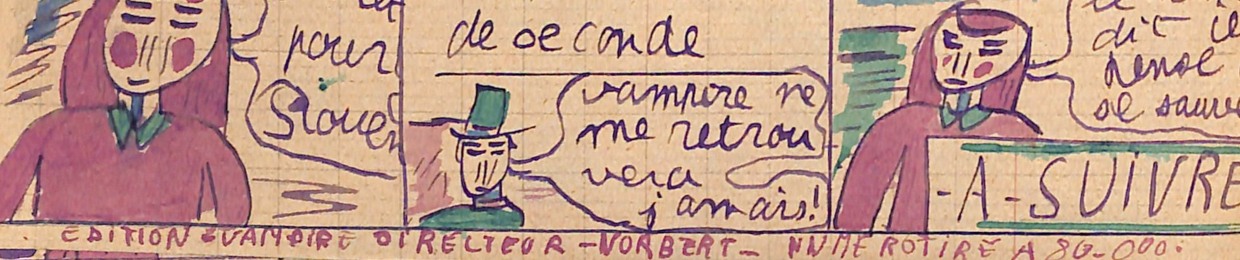 pour
de seconde
vampire ne
me retrou
vera
jamais!
dit
pense
se sauve
-A-SUIVRE
EDITION-VAMPIRE DIRECTEUR-NORBERT- NUMEROTIRE A 80-000.